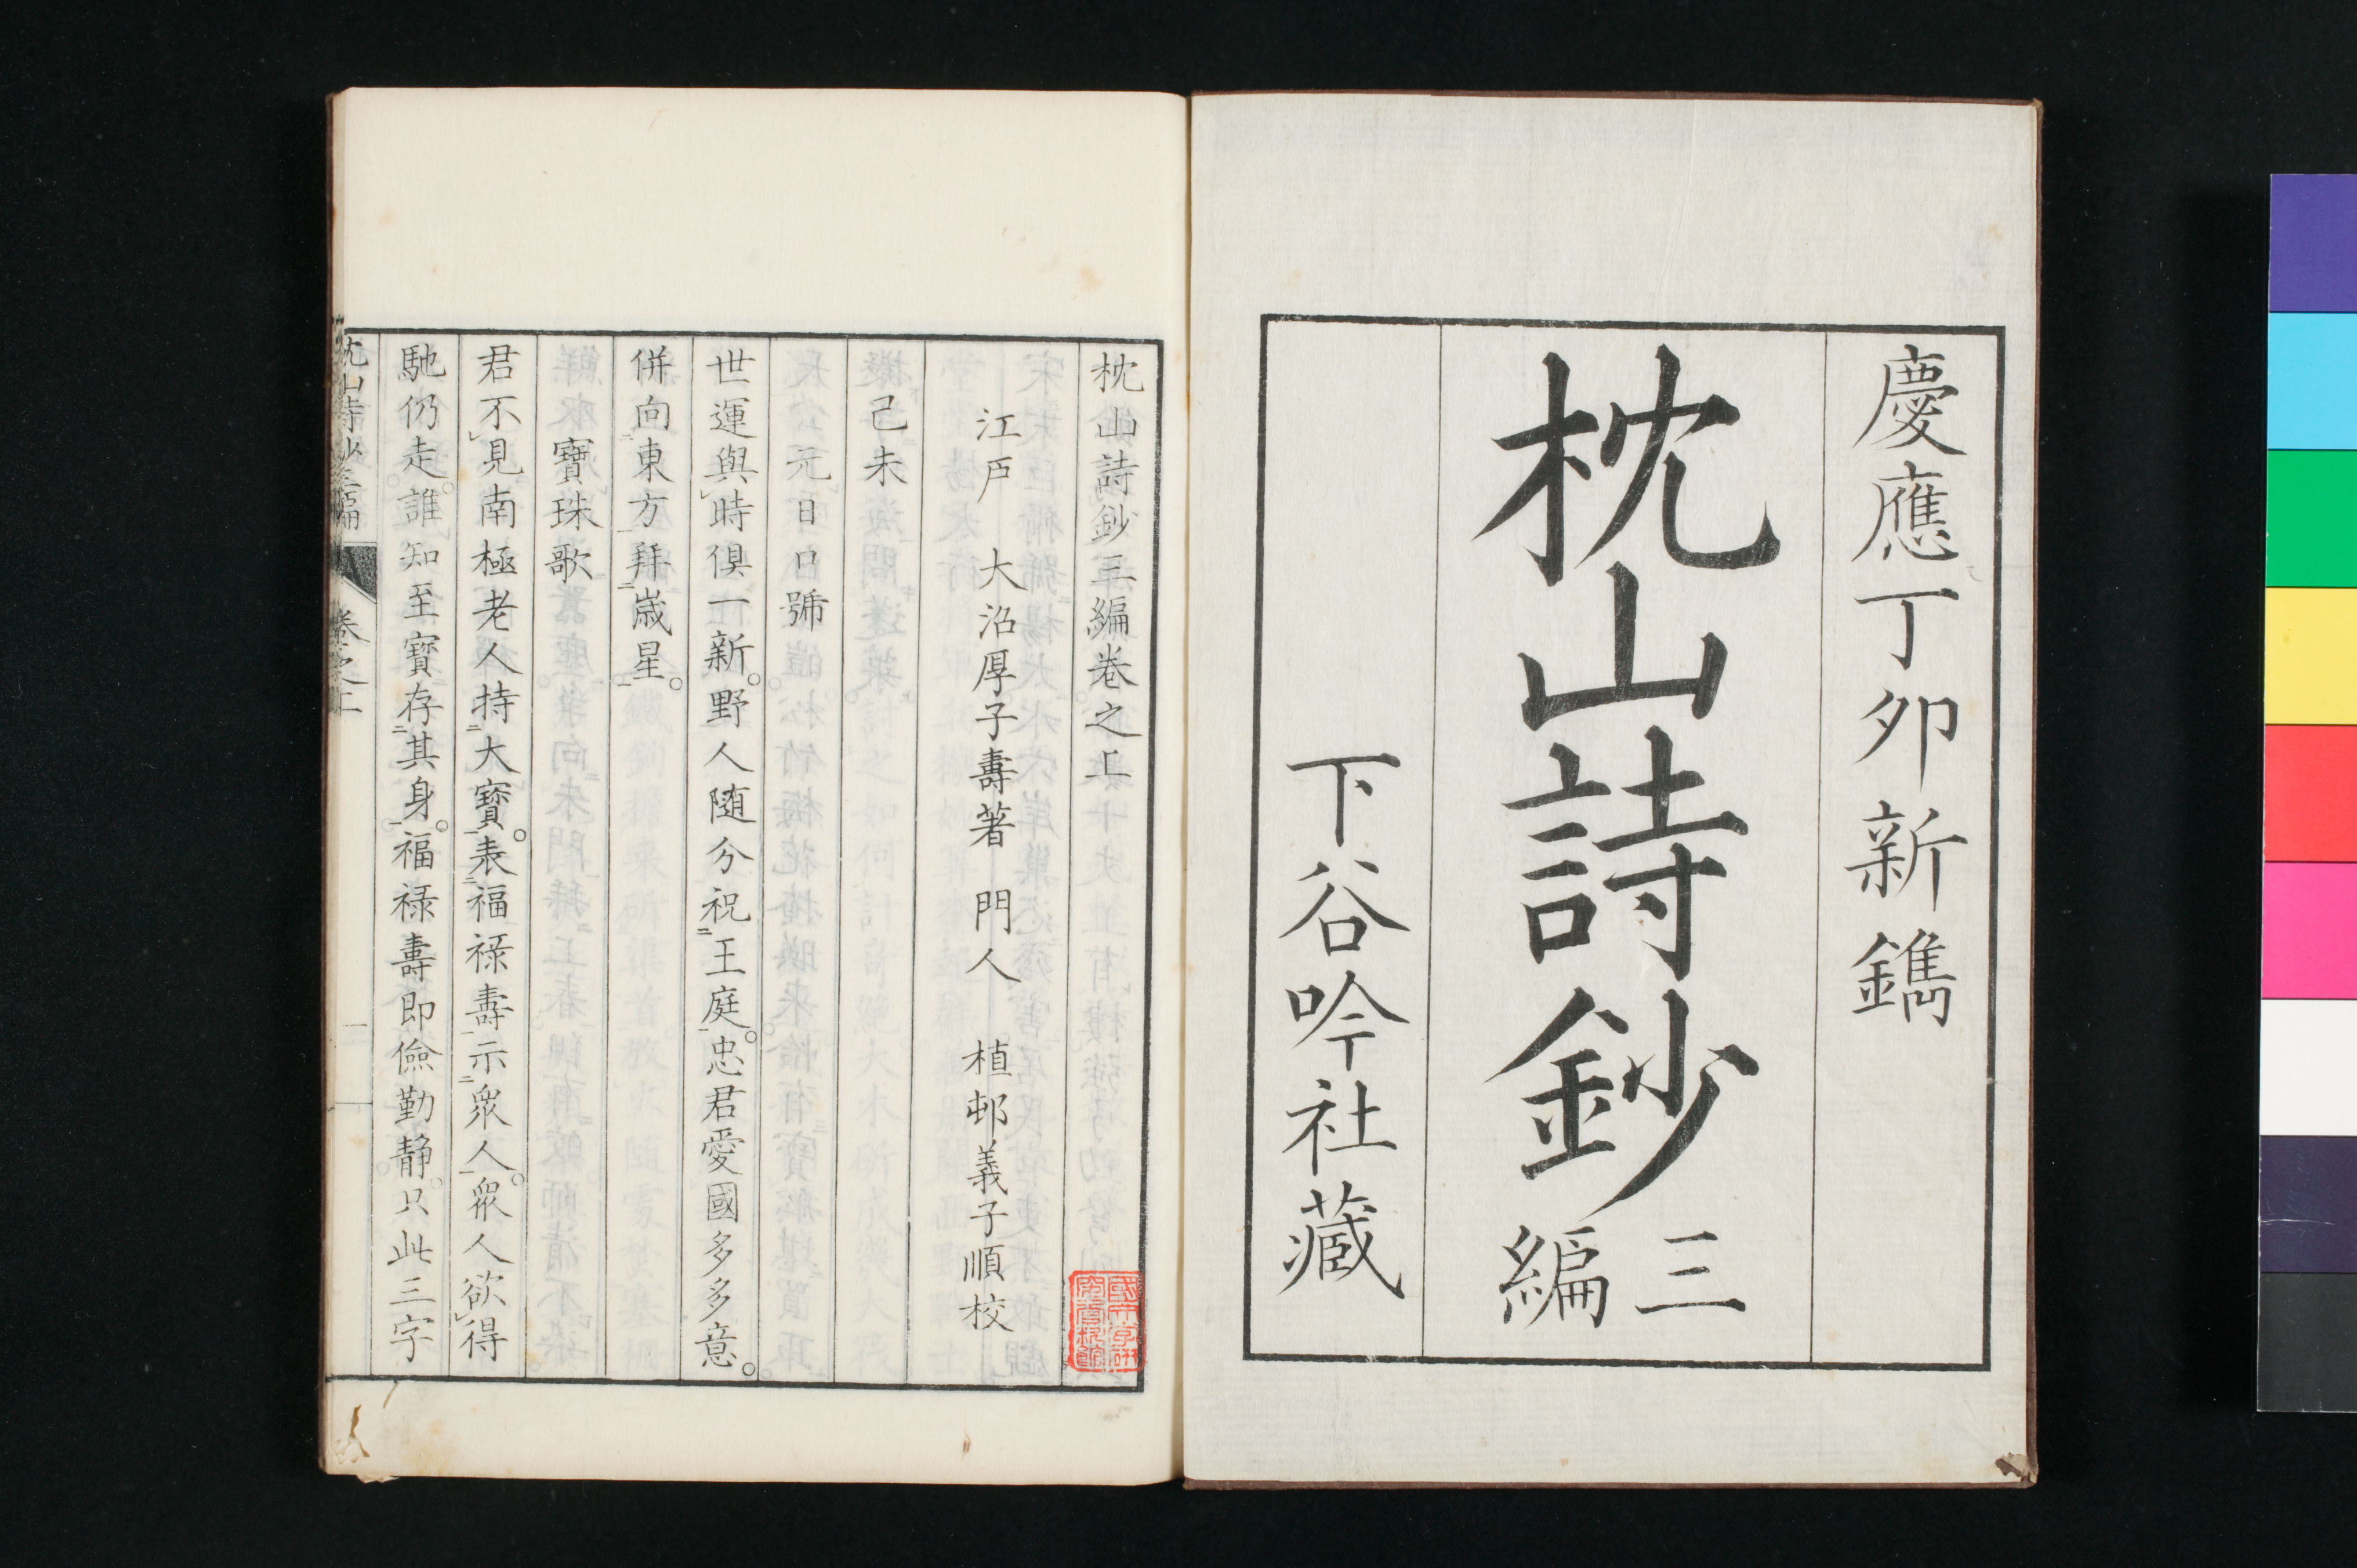 慶應丁卯新鐫
枕山詩鈔三編
下谷吟社藏
枕山詩鈔三編卷之上
江戸 大沼厚子壽著 門人 植邨義子順校
己未
元日口號
世運與時俱一新野人随分祝王庭忠君愛國多多意
併向東方拜歳星
寶珠歌
君不見南極老人持大寶表福禄壽示衆人衆人欲得
馳仍走誰知至寶存其身福禄壽即儉勤静只此三字
枕山詩鈔三編 卷之上